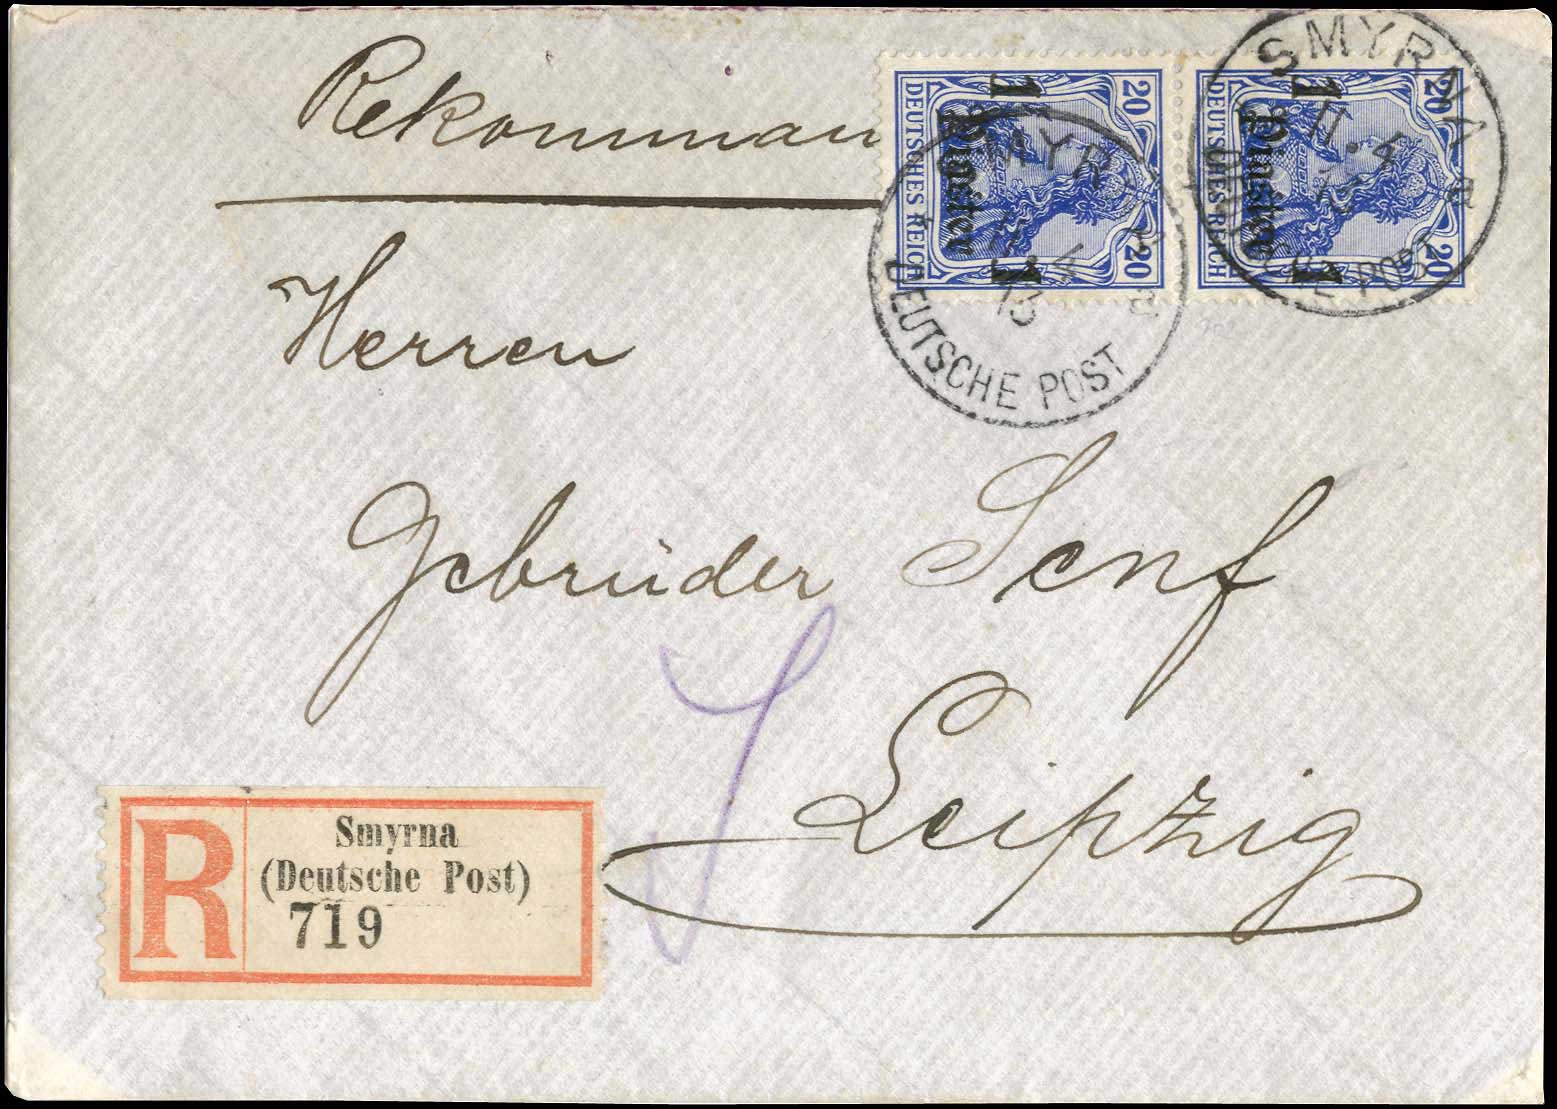 Rekomman
Herren
Gebrüder Senf
Leipzig
20 DEUTSCHES REICH 20
1 Piaster 1
20 DEUTSCHES REICH 20
1 Piaster 1
SMYRNA
11.4
13
a
DEUTSCHE POST
SMYRNA
11.4
13
a
DEUTSCHE POST
R
Smyrna
(Deutsche Post)
719